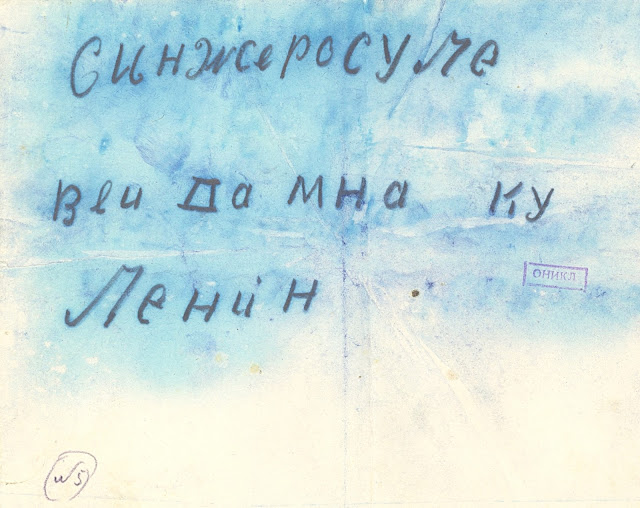 Синжеросуле
веи да мна ку
Ленин
ОНИКЛ
№5